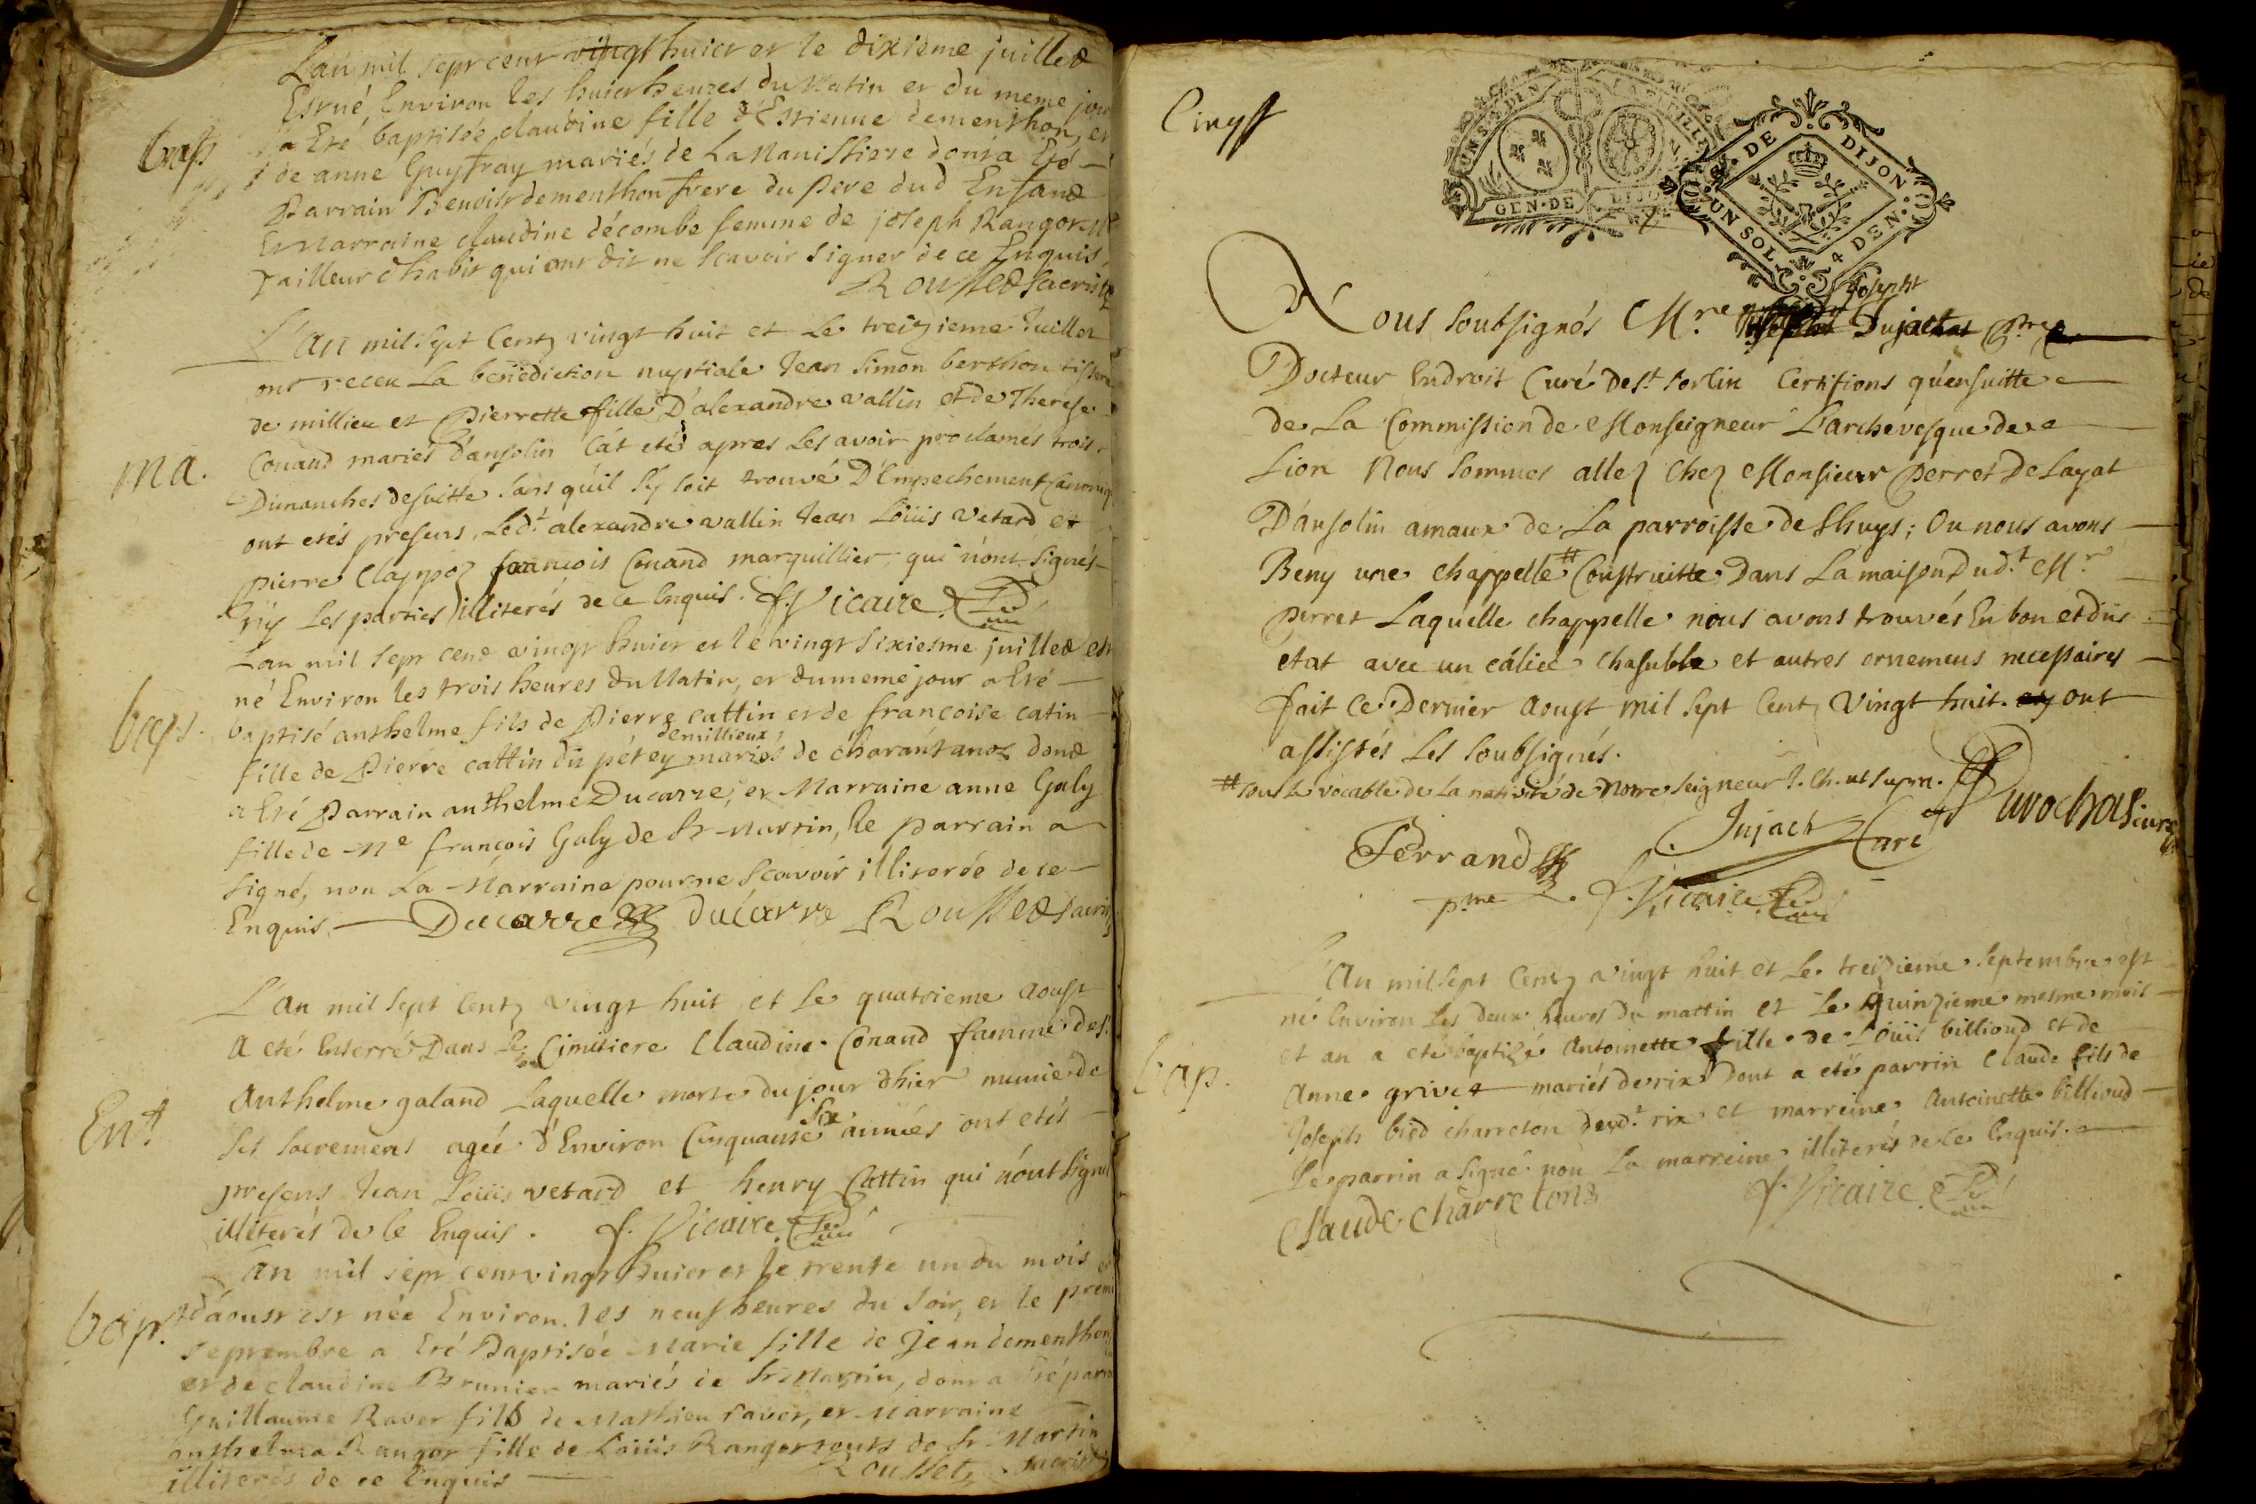 L'an mil sept cent vingt huict et le dixième juillet
Est né Environ les huict heures du Matin et du meme jour
bap
a Eté baptisée claudine fille d'Estienne dementhon, et
de anne Guyfray mariés de la Manissiere dont a Eté
Parrain Benoist dementhon frere du Pere dud Enfand
Et Marraine claudine décombe femme de joseph Rangor
Tailleur d'habit qui ont dit ne scavoir signer de ce Enquis
Rousset Sacristn
L'an mil sept Centz vingt huit et Le treizieme Juillet
ont receu La bénédiction nuptiale Jean Simon berthon
de millieu et Pierrette fille D'alexandre vallin et de Therese
ma.
Conand mariés d'ansolin Cât etés apres Les avoir proclamés trois
Dimanches desuitte sans qu'il s'y soit trouvé D'Empechement Canoniq
ont etés presens, Led.t alexandre vallin Jean Louis Vetard et
pierre Clappoz francois Conand marguillier, qui n'ont signés
n'y Les parties illiterés de ce Enquis. f. Vicaire
L'an mil sept cent vingt huict et le vingt sixiesme juillet est
né Environ les trois heures du Matin, et du meme jour a Eté
bap.
baptisé anthelme fils de Pierre cattin et de françoise catin
de millieux
fille de Pierre cattin du pétey mariés de charantanoz dont
a Eté Parrain anthelme Ducarre, et Marraine anne Galy
fille de Me françois Galy de St Martin, le parrain a
signé, non La Marraine pour ne Scavoir illiterée de ce
Enquis. Ducarre ducarre Rousset Sacrist
L'an mil sept Centz vingt huit et Le quatrieme aoust
a eté Enterré Dans Le Cimitiere Claudine Conand famme de
Anthelme galand Laquelle morte du jour d'hier munie de
Ent
six
ses sacremens agée d'Environ Cinquante années ont etés
presens Jean Louis vetard et henry Cattin qui n'ont signé
illiterés de ce Enquis. f. Vicaire
L'an mil sept cent vingt huict et le trente un du mois
d'aoust est née Environ les neuf heures du Soir, et le prem
bap.
septembre a Eté Baptisée Marie fille de Jean dementhon
et de claudine Brunier mariés de St Martin, dont a Eté parain
Guillaume Raver fils de Mathieu raver, et Marraine
anthelma Rangor fille de Louis Rangor touts de St Martin
illiterés de ce Enquis Rousset Sacrist
Cingt
GEN·DE DIJON
G·DE DIJON
UN SOL 4 DEN.
Joseph
Nous soubsignés M.re Dujact P.re
Docteur En droit Curé de S.t sorlin Certifions qu'ensuitte
de La Commission de Monseigneur L'archévesque de
Lion Nous sommes allez chez Monsieur Perret De Layat
D'ansolin amaux de La parroisse de Lhuys; Ou nous avons
Beny une chappelle # Construitte Dans La maison Dud.t M.r
perret Laquelle chappelle nous avons trouvés En bon et dus
etat avec un cálice chasuble et autres ornemens necessaires
fait Ce Dernier aoust mil sept Centz Vingt huit. ont
assistés Les soubsignés.
# sous le vocable de La nativité de Notre seigneur J. Ch. ut supra.
Durochat curé
Dujact Curé
Ferrand
f. Vicaire
L'an mil sept Centz vingt huit et Le treizieme septembre est
né Environ Les deux heures du mattin et Le Quinzieme mesme mois
bap.
et an a eté baptizé Antoinette fille de Louis billioud et de
Anne grivet mariés de rix Dont a eté parrin Claude fils de
Joseph bied charreton dud.t rix et marreine Antoinette billioud
Le parrin a signé non La marreine illiterés de ce Enquis.
Claude Charreton f. Vicaire